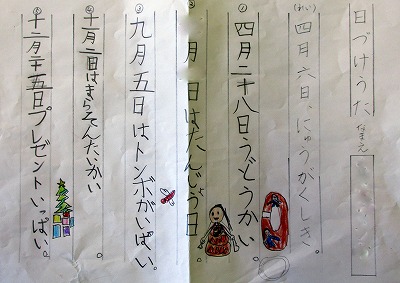 日づけうた
なまえ
(れい)
四月六日、にゅうがくしき。
①
四月二十八日うどうかい。
②
月 日はたんじょう日。
③
九月五日はトンボがいぱい。
④
十一月二日はまらそんたいかい
⑤
十二月二十五日プレゼントいっぱい。